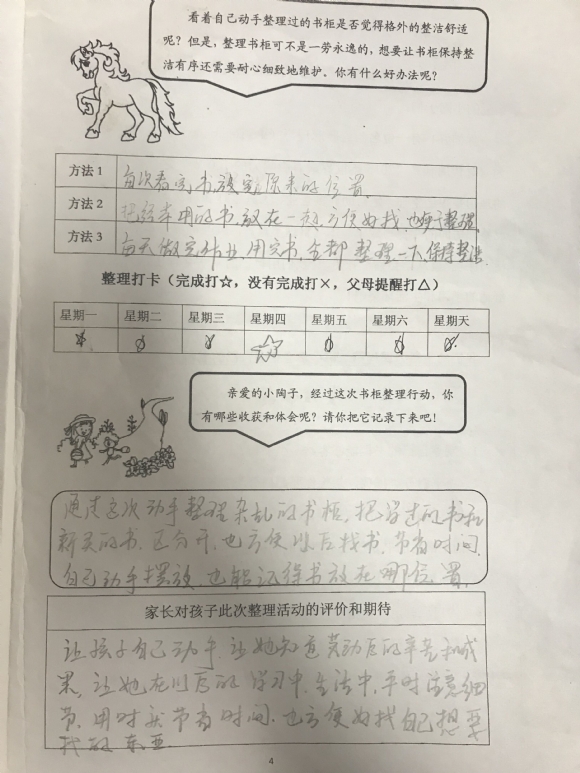 看着自己动手整理过的书柜是否觉得格外的整洁舒适
呢？但是，整理书柜可不是一劳永逸的，想要让书柜保持整
洁有序还需要耐心细致地维护。你有什么好办法呢？
方法1 每次看完书，放完原来的位置。
方法2 把经常用的书，放在一起，方便好找，也便于整理
方法3 每天做完作业，用完书，全都整理一下，保持整洁
整理打卡（完成打☆，没有完成打×，父母提醒打△）
星期一 星期二 星期三 星期四 星期五 星期六 星期天
☆ ☆ ☆ ☆ ☆ ☆ ☆
亲爱的小陶子，经过这次书柜整理行动，你
有哪些收获和体会呢？请你把它记录下来吧！
通过这次动手整理杂乱的书柜，把学过的书和
新买的书，区分开，也方便以后找书，节省时间，
自己动手摆放，也能记得书放在哪位置。
家长对孩子此次整理活动的评价和期待
让孩子自己动手，让她知道劳动后的辛苦和成
果，让她在以后的学习中，生活中，平时注意细
节，用时就节省时间，也方便好找自己想要
找的东西
4